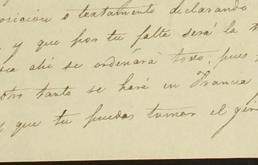 o textamento declarando
y que por tu falta será la
se ordenará todo, pues
otro tanto se hará en Francia
y que tu puedas tomar el